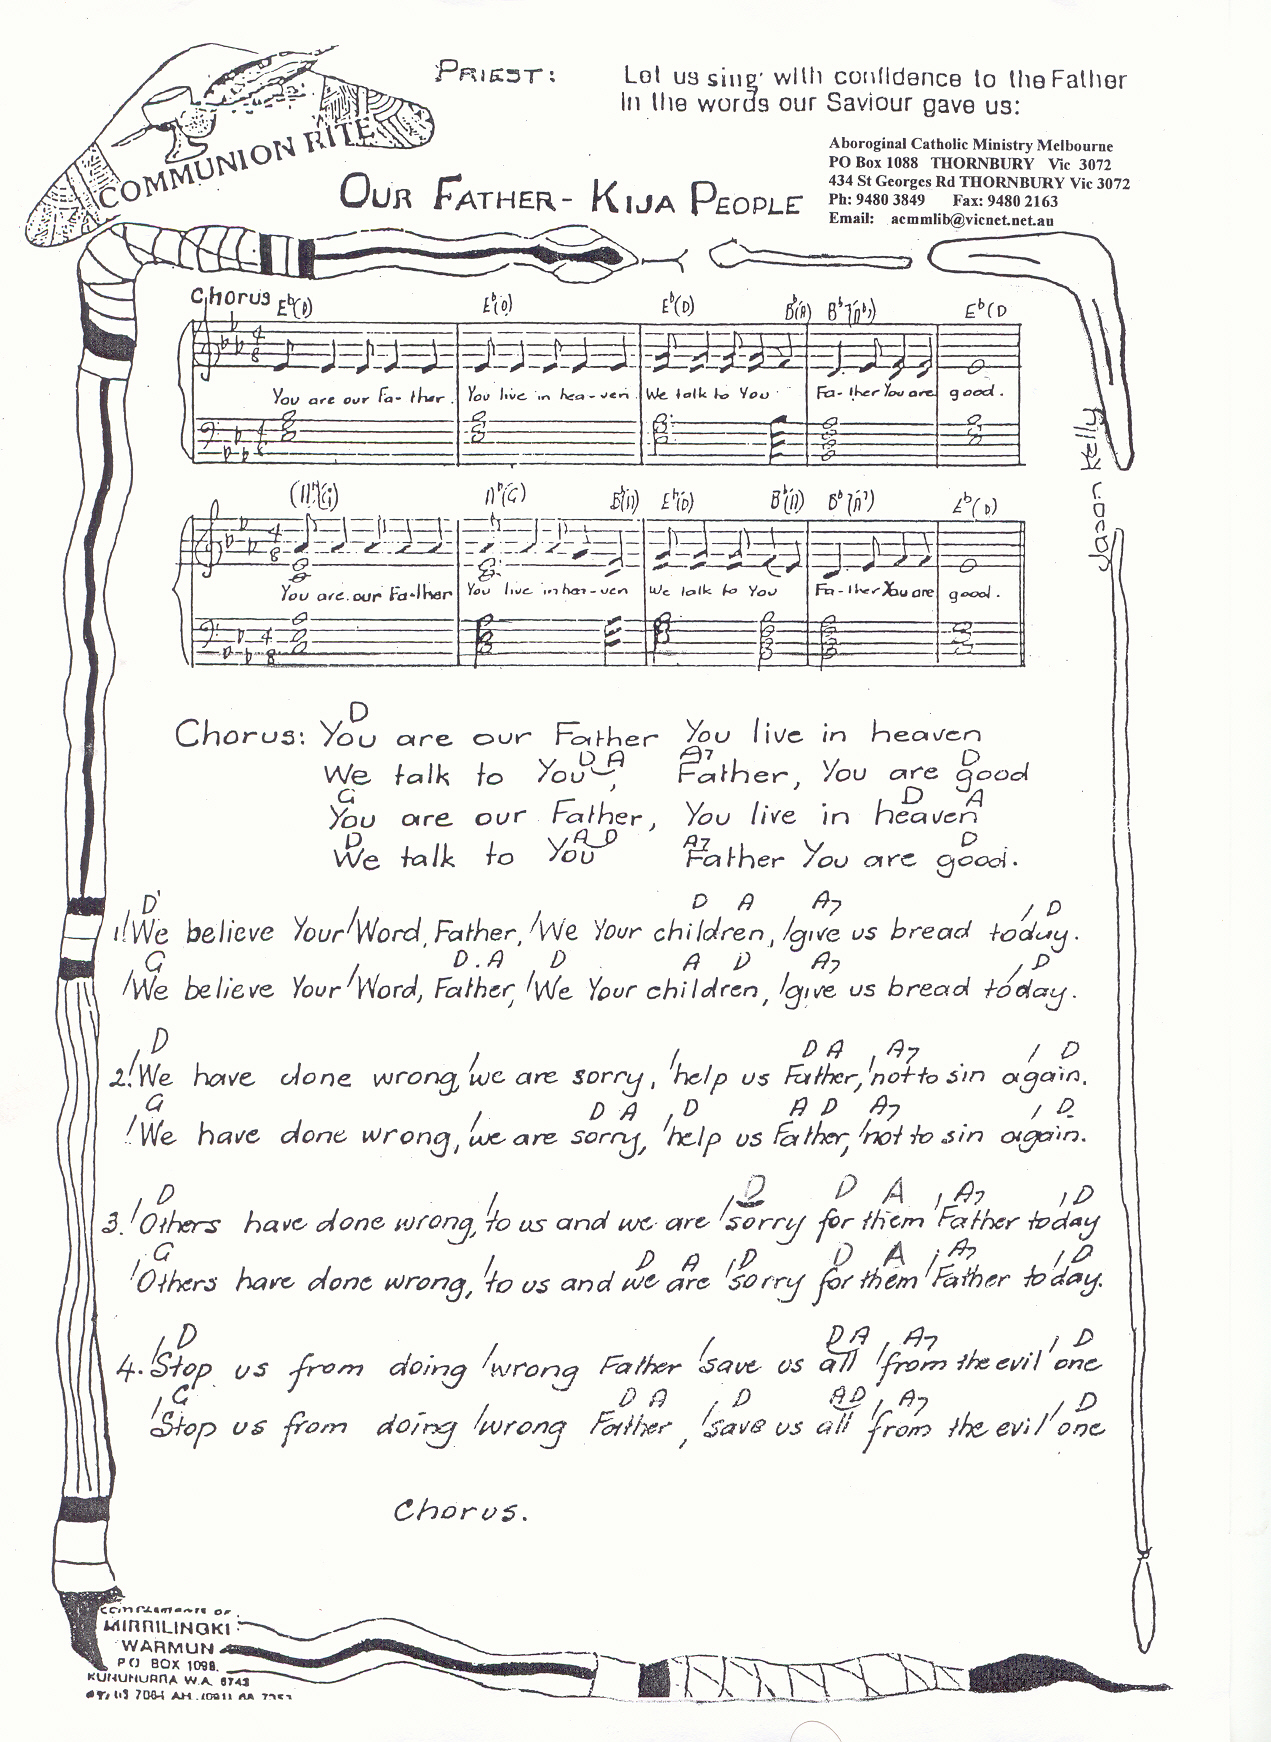 COMMUNION RITE
PRIEST:
Let us sing with confidence to the Father
In the words our Saviour gave us:
Aboroginal Catholic Ministry Melbourne
PO Box 1088 THORNBURY Vic 3072
434 St Georges Rd THORNBURY Vic 3072
Ph: 9480 3849 Fax: 9480 2163
Email: acmmlib@vicnet.net.au
OUR FATHER - KIJA PEOPLE
Chorus Eb(D) Eb(D) Eb(D) Bb(A) Eb(D
You are our Fa-ther. You live in hea-ven. We talk to You Fa-ther You are good.
Eb(D) Bb(A) Eb(D)
You are our Fa-ther You live in hea-ven We talk to You Fa-ther You are good.
Jack Kelly
D
Chorus: You are our Father You live in heaven
D A A7 D
We talk to You, Father, You are good
G D A
You are our Father, You live in heaven
D A D A7 D
We talk to You Father You are good.
D D A A7 / D
1./We believe Your/Word, Father, /We Your children, /give us bread today.
G D. A D A D A7 / D
/We believe Your/Word, Father, /We Your children, /give us bread today.
D / / D A / A7 / D
2./We have done wrong, /we are sorry, /help us Father, /not to sin again.
G / D A / D A D A7 / D
/We have done wrong, /we are sorry, /help us Father, /not to sin again.
/ D / / D D A / A7 / D
3. /Others have done wrong, /to us and we are /sorry for them /Father today
G D A / D D A / A7 / D
/Others have done wrong, /to us and we are /sorry for them /Father today.
/ D D A / A7 / D
4. /Stop us from doing /wrong Father /save us all /from the evil /one
/ G D A / D A D / A7 / D
/Stop us from doing /wrong Father, /save us all /from the evil /one
Chorus.
COMPLEMENTS OF
MIRRILINGKI
WARMUN
PO BOX 1098.
KUNUNURRA W.A. 6743